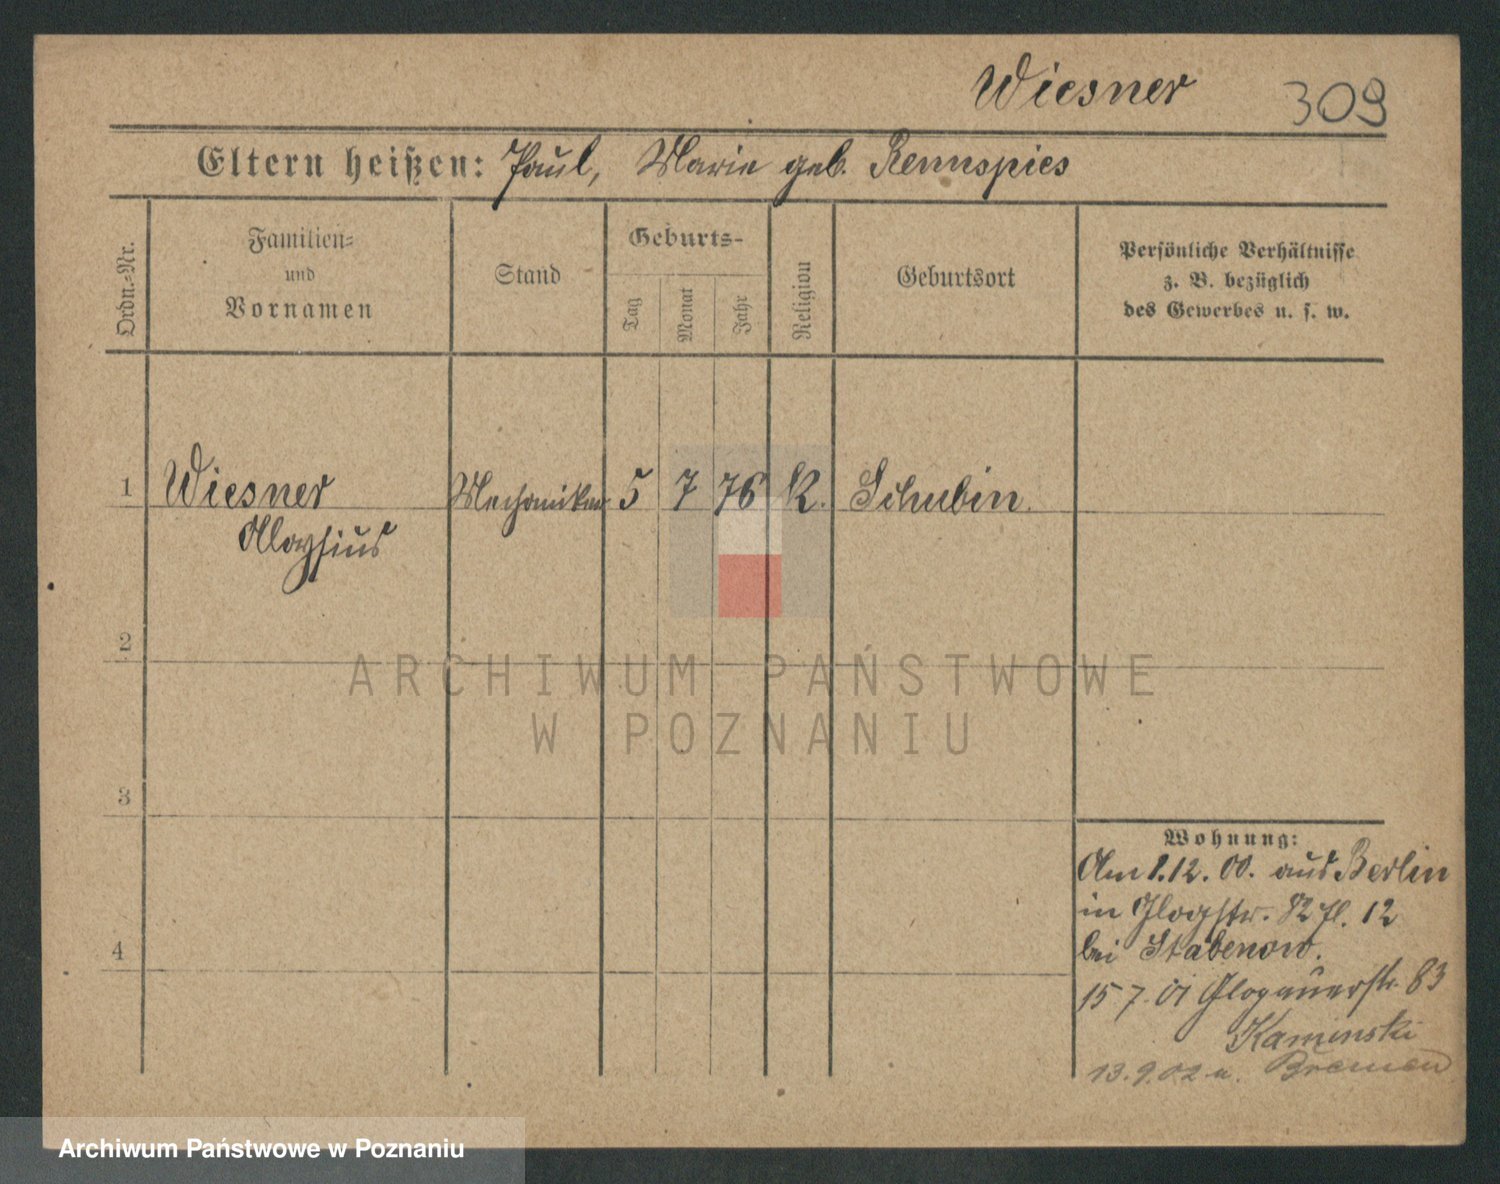 Wiesner 309
Eltern heißen: Paul, Marie geb. Rennspies
Ordn.-Nr.
Familien-
und
Vornamen
Stand
Geburts-
Tag
Monat
Jahr
Religion
Geburtsort
Persönliche Verhältnisse
z. B. bezüglich
des Gewerbes u. s. w.
1 Wiesner Mechaniker 5 7 76 K. Schubin.
Aloysius
2
ARCHIWUM PAŃSTWOWE
W POZNANIU
3
Wohnung:
Am 1.12.00. aus Berlin
in Glogstr. 82 Fl. 12
bei Stabenow.
4
15 7. 01 Glogauerstr. 83
Kaminski
13.9.02 n. Bremen
Archiwum Państwowe w Poznaniu